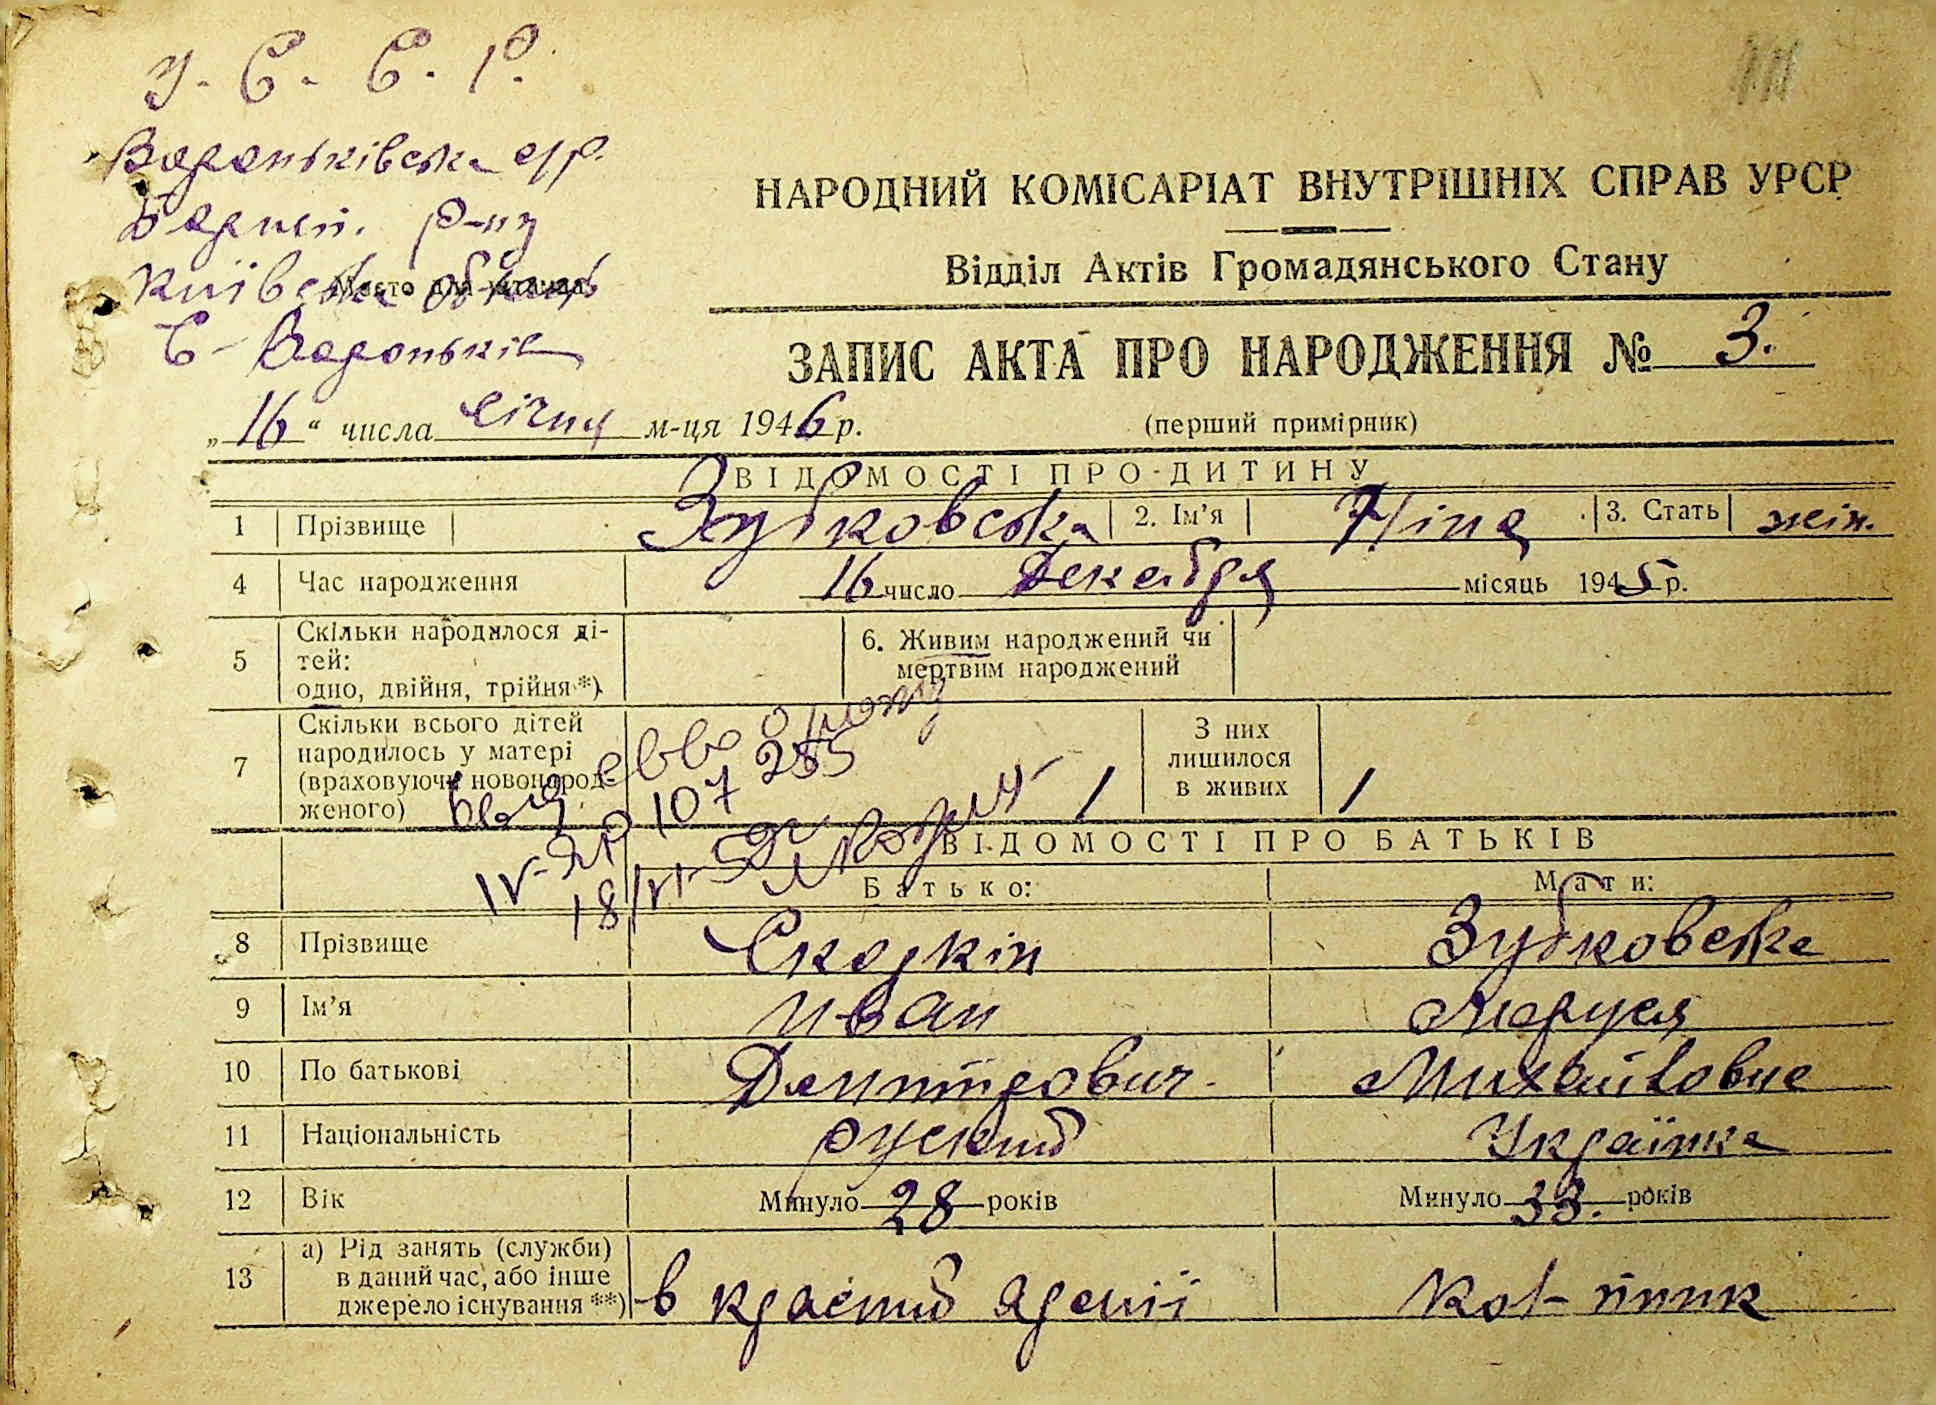 У. С. С. Р.
Вороньківська с/р.
Борисп. р-ну
Київська область
Место для штампа
С- Вороньків
НАРОДНИЙ КОМІСАРІАТ ВНУТРІШНІХ СПРАВ УРСР
Відділ Актів Громадянського Стану
ЗАПИС АКТА ПРО НАРОДЖЕННЯ № 3.
„16“ числа січня м-ця 1946 р.
(перший примірник)
ВІДОМОСТІ ПРО ДИТИНУ
1 Прізвище Зубковська 2. Ім’я Ніна 3. Стать жін.
4 Час народження 16 число Декабря місяць 1945 р.
5 Скільки народилося ді-
тей:
одно, двійня, трійня *)
6. Живим народжений чи
мертвим народжений
7 Скільки всього дітей
народилось у матері
(враховуючи новонарод-
женого) 1
З них
лишилося
в живих 1
выд. свво о рожд
IV-ЯР 107285
18/VI-59г
ВІДОМОСТІ ПРО БАТЬКІВ
Батько: Мати:
8 Прізвище Скоркін Зубковська
9 Ім’я Иван Маруся
10 По батькові Дмитрович Михайловна
11 Національність руский Українка
12 Вік Минуло 28 років Минуло 33. років
13 а) Рід занять (служби)
в даний час, або інше
джерело існування **)
в красний армії Кол-пник